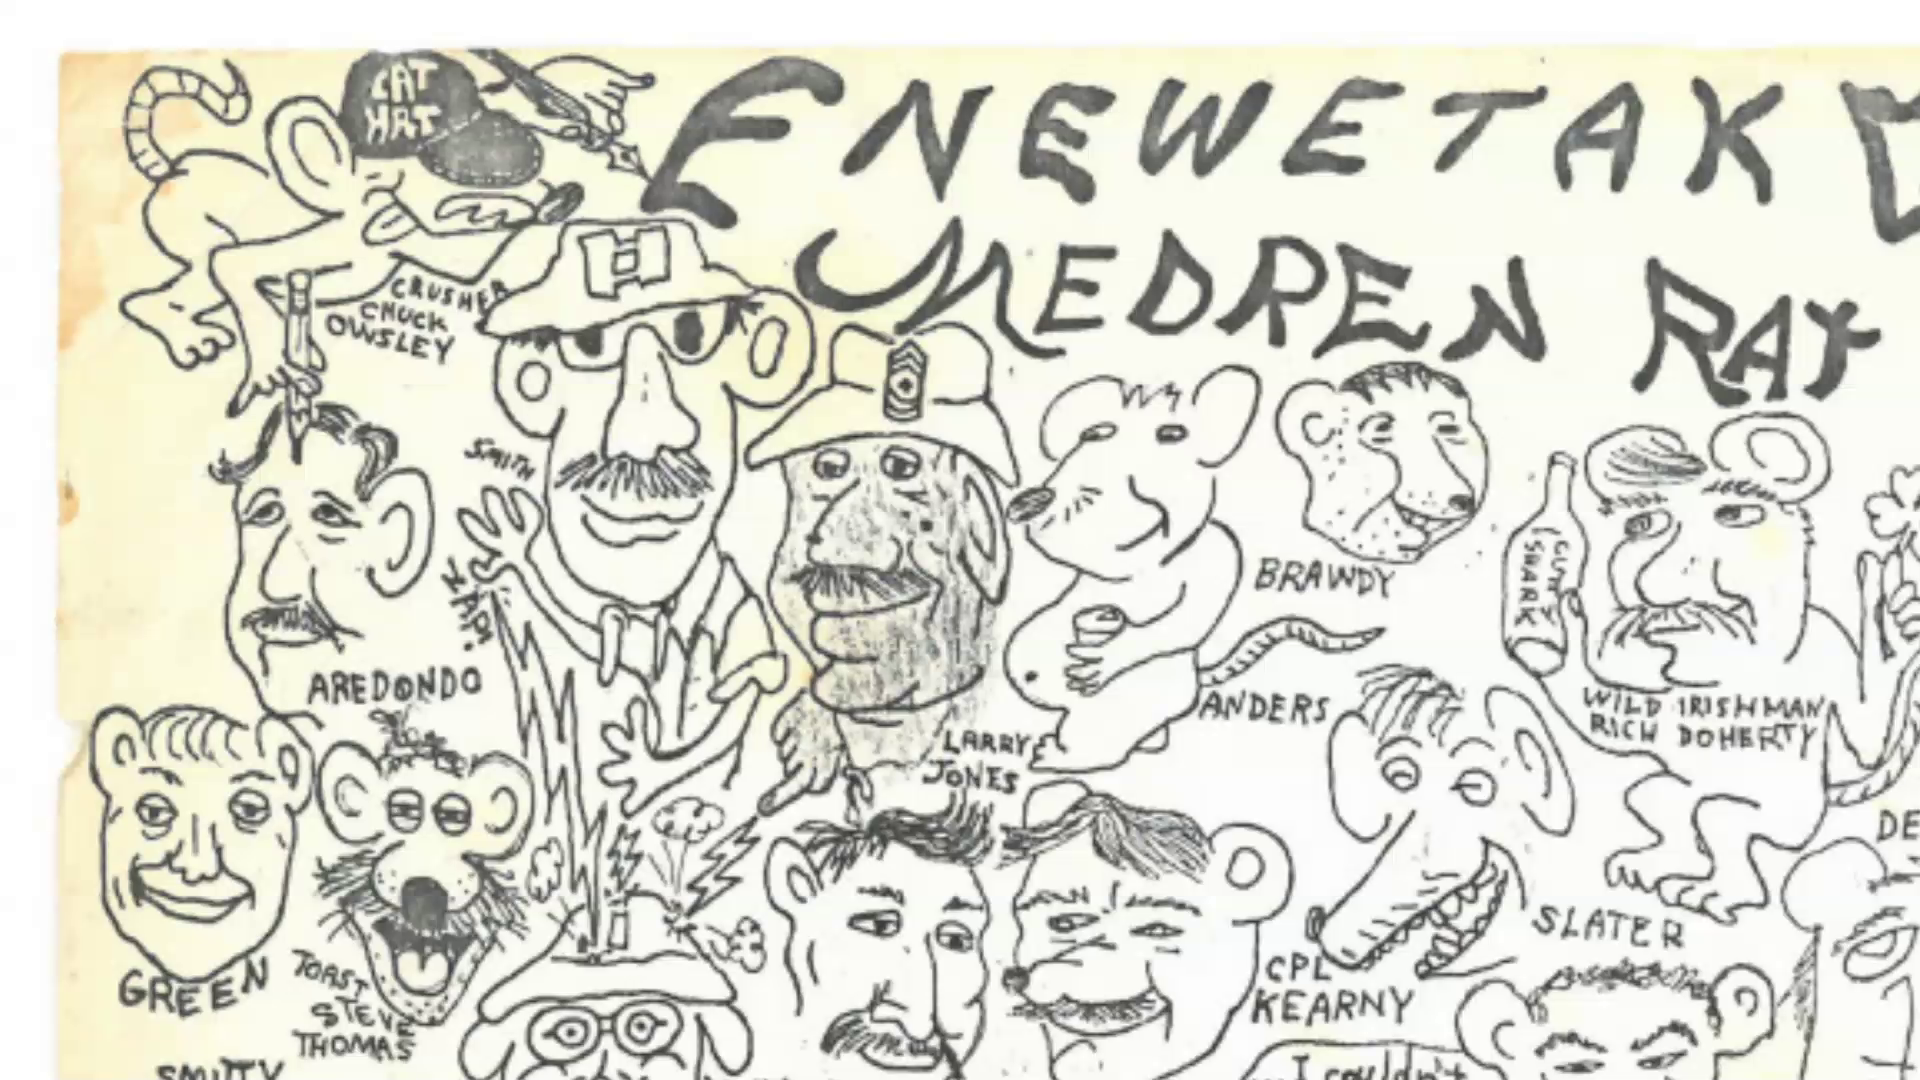 CAT
HAT
ENEWETAK
MEDREN RAY
CRUSHER
CHUCK
OWSLEY
SMITH
ZAP!
AREDONDO
LARRY
JONES
BRAWDY
ANDERS
CUTTY
SHARK
WILD IRISHMAN
RICH DOHERTY
GREEN
TOAST
STEVE
THOMAS
SLATER
CPL
KEARNY
DE
SMITTY
I couldn't